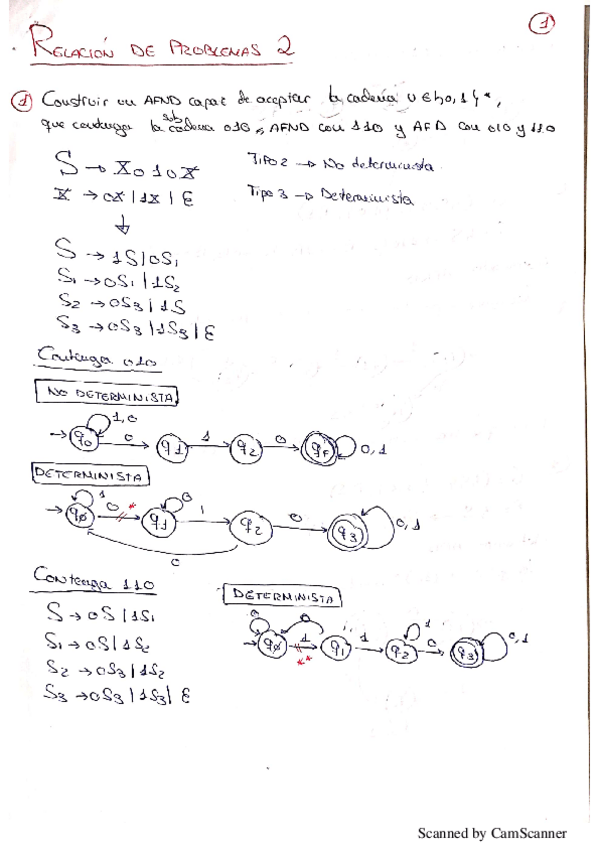 1
RELACIÓN DE PROBLEMAS 2
1 Construir un AFND capaz de aceptar la cadena u ∈ {0,1}*,
que contenga la subcadena 010, AFND con 110 y AFD con 010 y 110
S → X010X Tipo 2 → No determinista
X → 0X | 1X | ε Tipo 3 → Determinista
S → 1S | 0S1
S1 → 0S1 | 1S2
S2 → 0S3 | 1S
S3 → 0S3 | 1S3 | ε
Contenga 010
NO DETERMINISTA
1,0
q0 0 q1 1 q2 0 qF 0,1
DETERMINISTA
1 0 * 0
q0 q1 1 q2 0 q3 0,1
0
Contenga 110
DETERMINISTA
S → 0S | 1S1
S1 → 0S | 1S2
S2 → 0S3 | 1S2
S3 → 0S3 | 1S3 | ε
0 0 1 0,1
q0 1 q1 1 q2 0 q3
**
Scanned by CamScanner